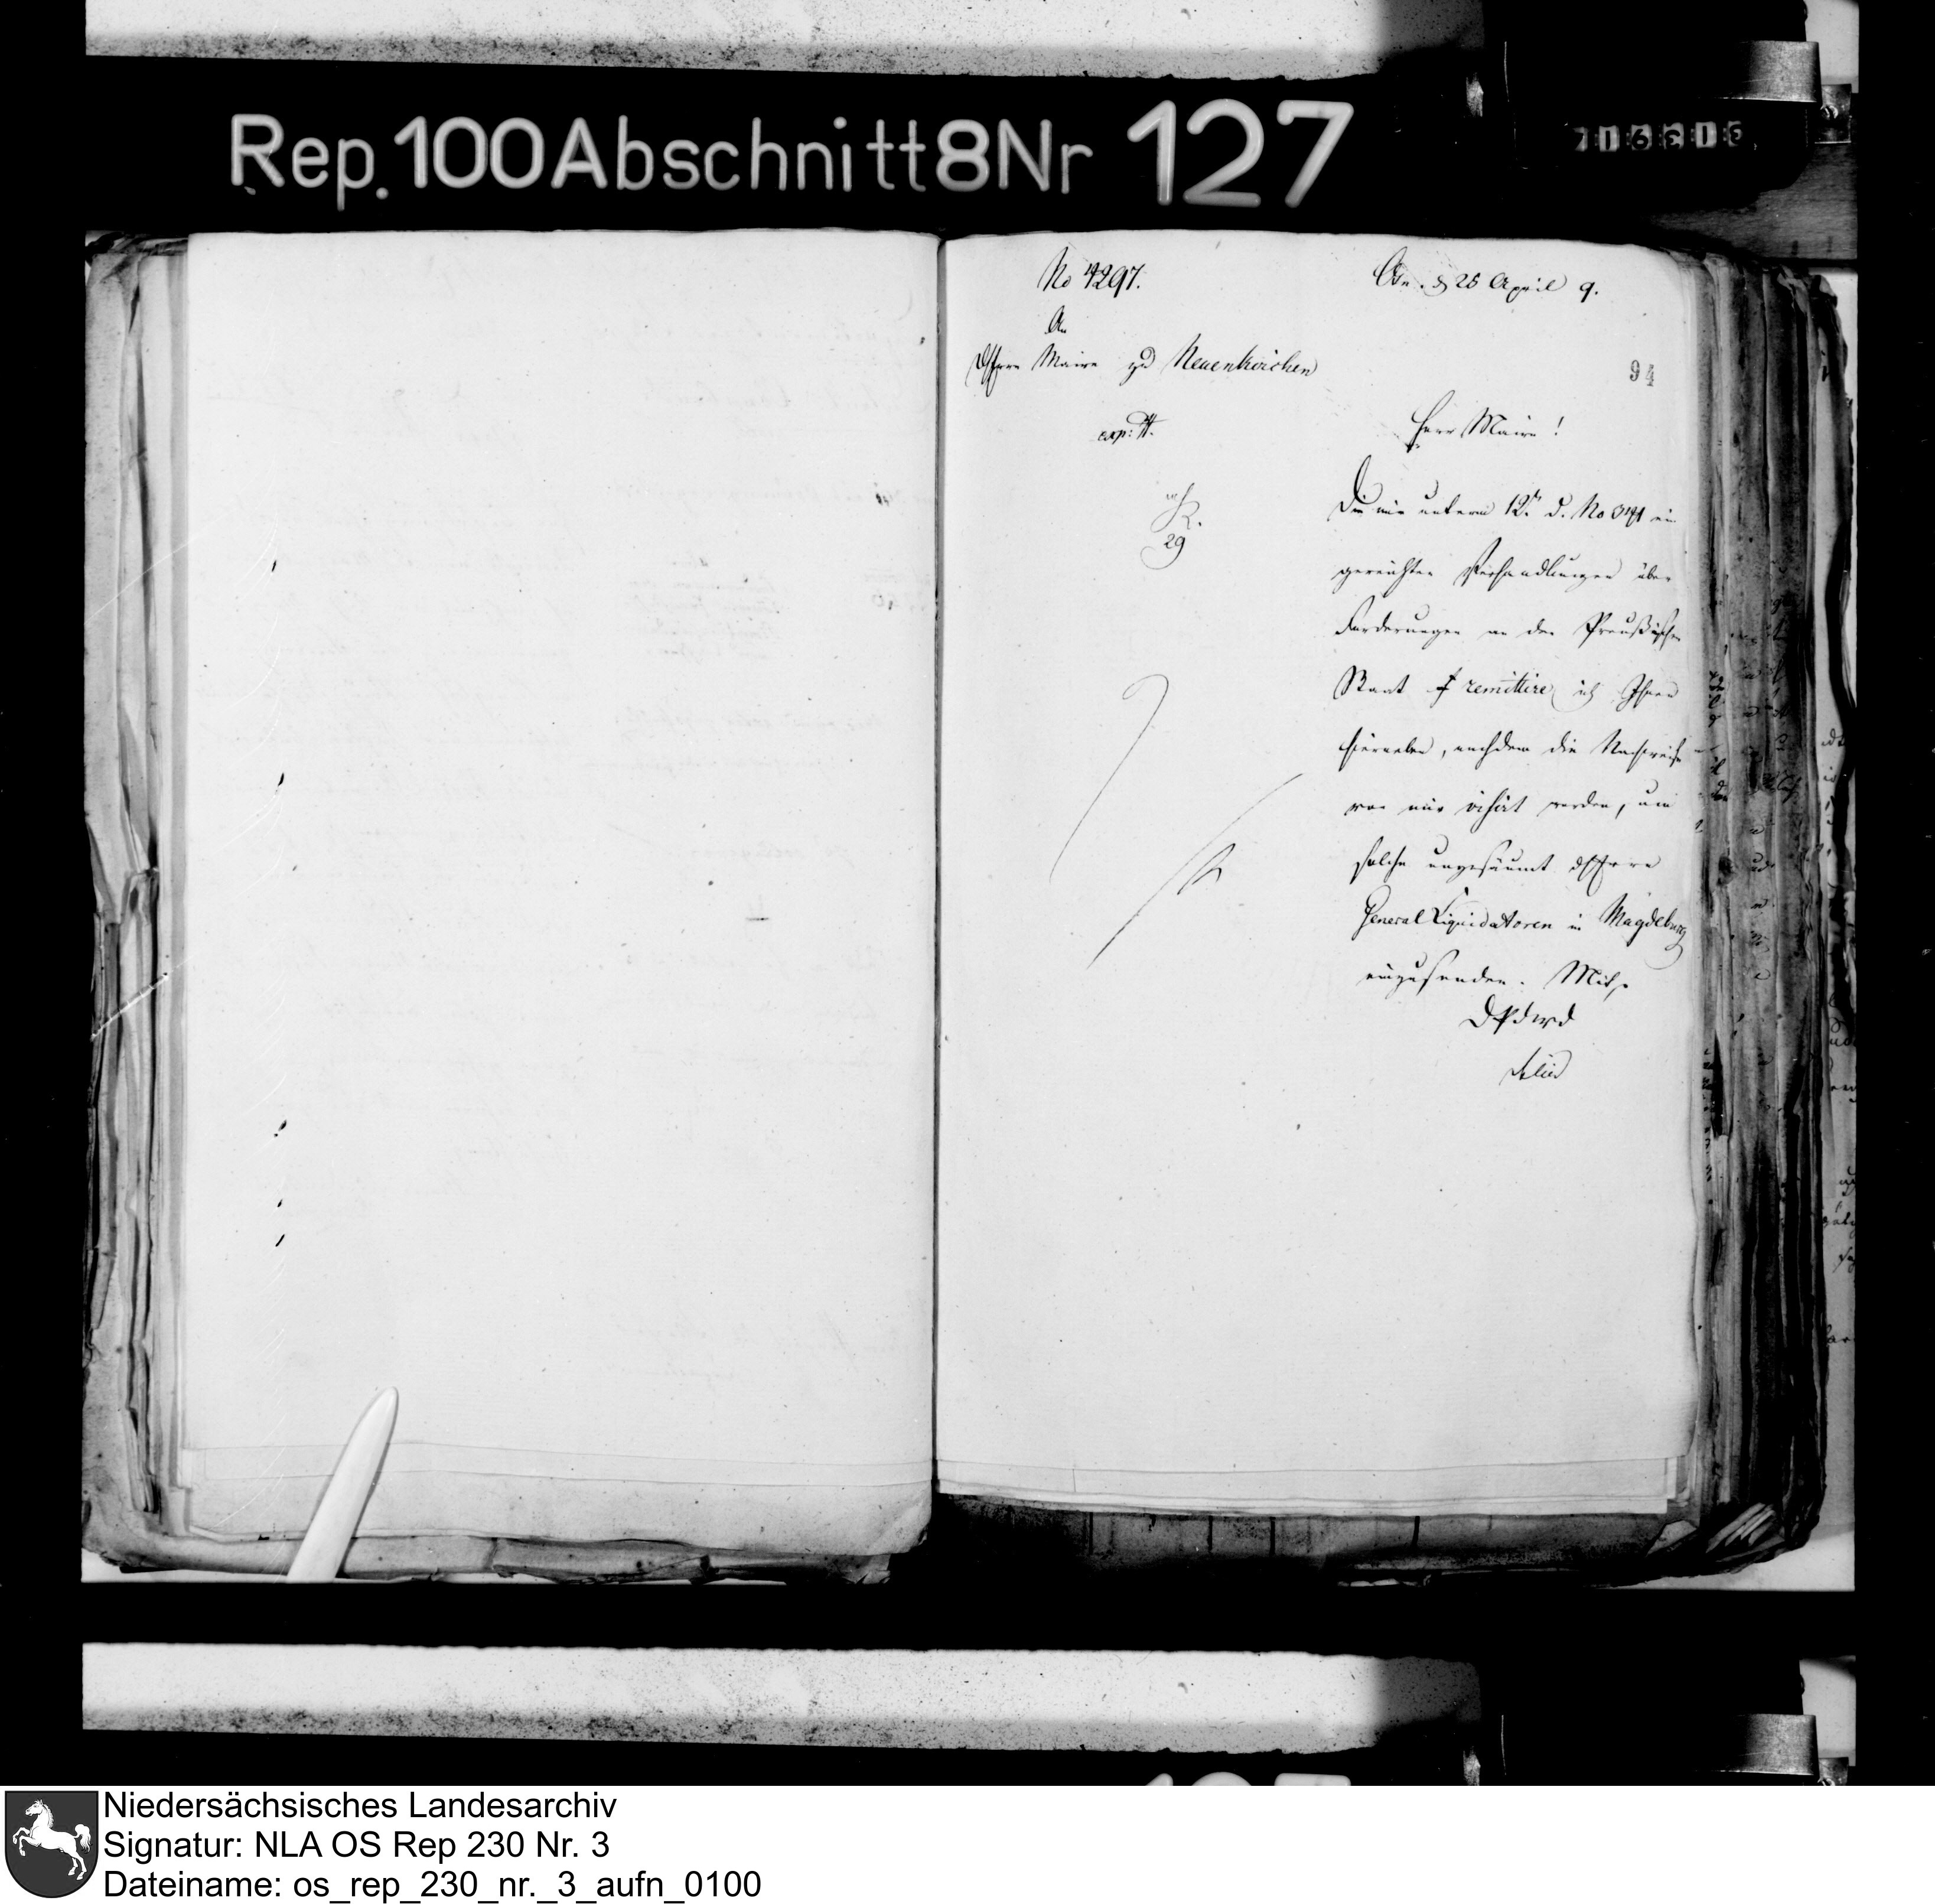 Rep. 100 Abschnitt 8 Nr 127
716315
No 4297.
Osn. d 28 April 9.
An
dHerrn Maire zu Neuenkirchen
94
exp: H.
Herr Maire!
29
Die mir unterm 12n d. No 3191 ein
gereichten Verhandlungen über
Forderungen an den Preußischen
Staat remittire ich Ihnen
hierneben, nachdem die Nachweise
von mir visirt worden, um
solche ungesäumt dHerrn
General Liquidatoren in Magdeburg
einzusenden. Mit p
DPdwd
Niedersächsisches Landesarchiv
Signatur: NLA OS Rep 230 Nr. 3
Dateiname: os_rep_230_nr._3_aufn_0100